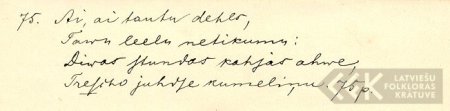 75. Ai, ai tautu dehls,
Tawu leelu netikumu:
Diwas stundas kahjas ahwe,
Trescho juhdse kumeliņu. 75 p.
LATVIEŠU
FOLKLORAS
KRĀTUVE